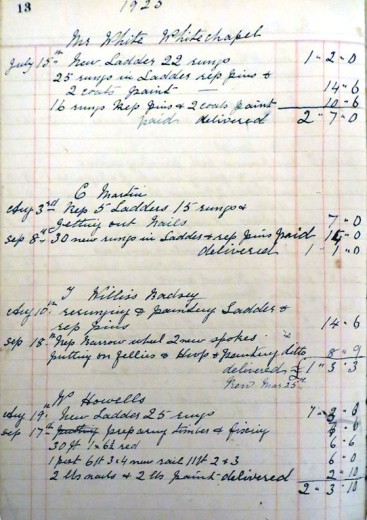 13
1925
Mr White Whitechapel
July 15th New Ladder 22 rungs 1-2-0
25 rungs in Ladder rep pins &
2 coats paint 14-6
16 rungs Rep pins & 2 coats paint 10-6
paid delivered 2"7-0
C Martin
Aug 3rd Rep 5 Ladders 15 rungs &
getting out Nails 7-0
Sep 8th 30 new rungs in Ladder & rep pins paid -0
delivered 1-1-0
T Willis
Aug 10th rerunging & painting Ladder &
rep pins 14-6
Sep 18th Rep Barrow wheel 2 new spokes
putting on fellies & Hoop & painting ditto 8-9
delivered £1"3-3
Howells
Aug 19th New Ladder 25 rungs
Sep 17th preparing timber & fixing
30 ft red 6-6
1 post 6 ft 3x4 new rail 11 ft 2x3 6-0
2 lbs nails & 2 lbs paint delivered 2-10
2-3-10